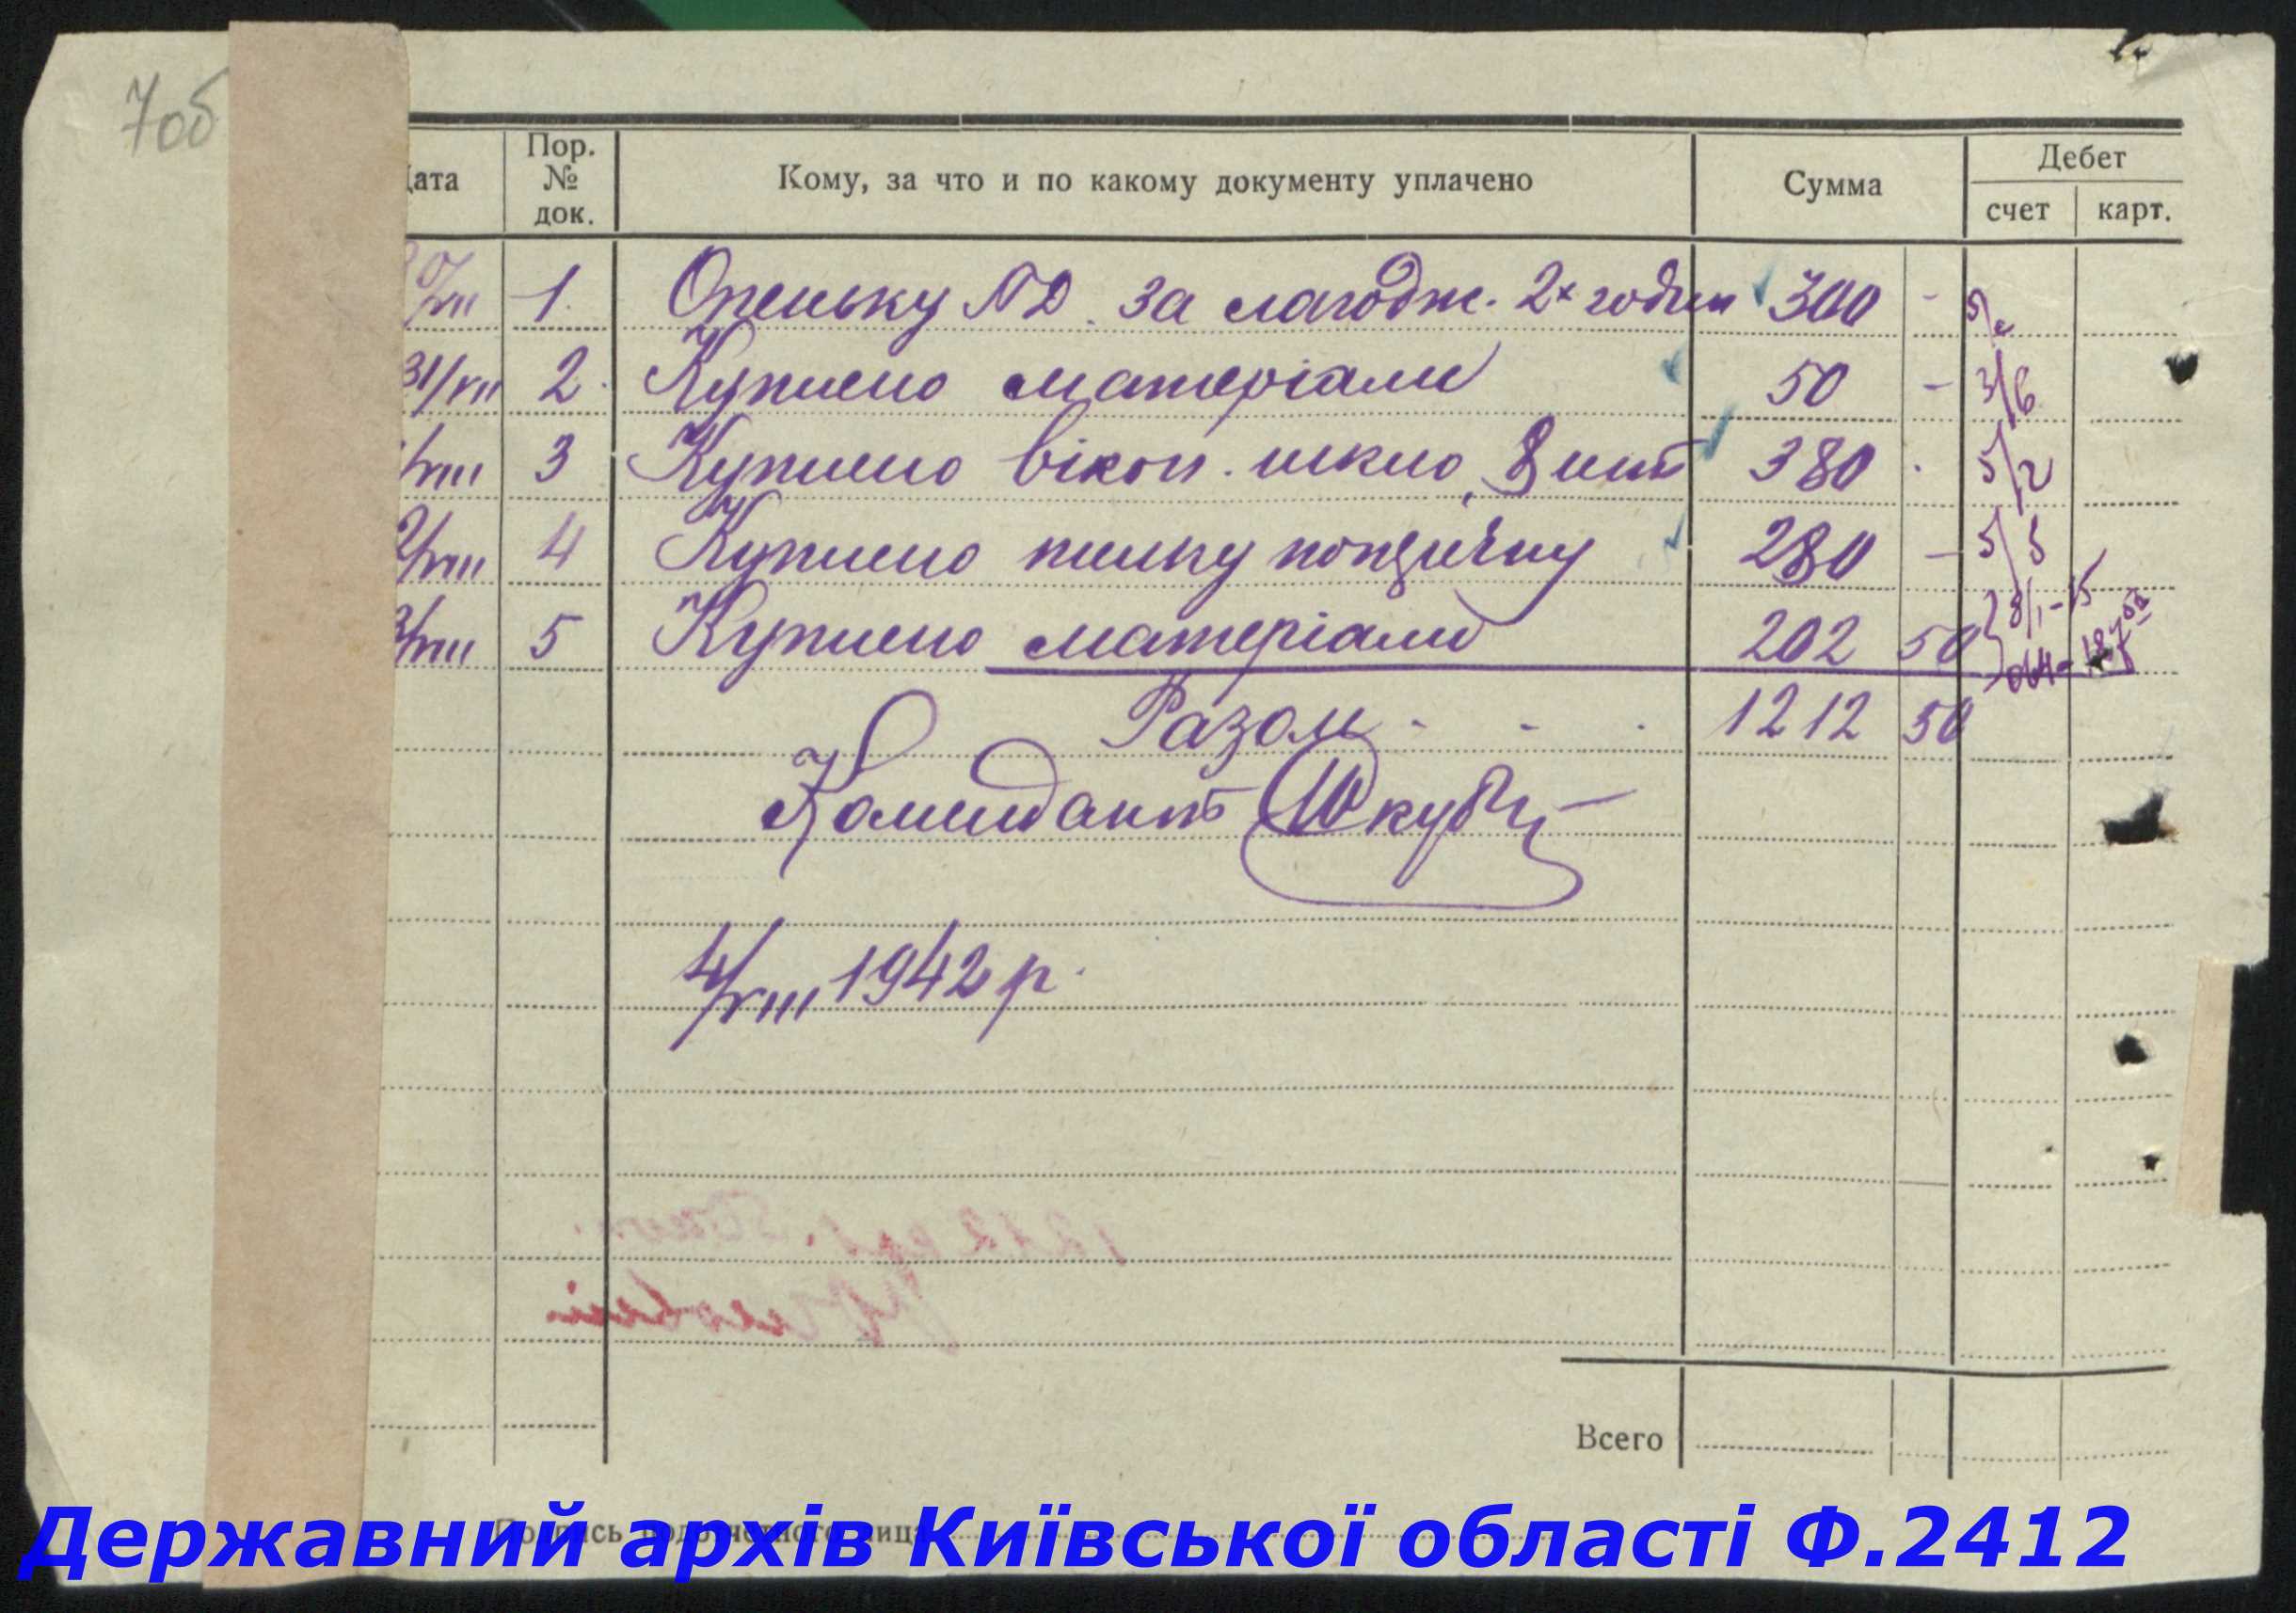 7об
Дата Пор. № док. Кому, за что и по какому документу уплачено Сумма Дебет счет карт.
30/VII 1. Опеньку П Д. за лагодж. 2х годин 300 -
31/VII 2. Куплено матеріали 50 - 3/6
1/VIII 3 Куплено вікон. шкло, 8 шт 380 . 5/2
2/VIII 4 Куплено пилку поперечну 280 - 5/5
3/VIII 5 Куплено матеріали 202 50
Разом - - . 1212 50
Комендант Шкуб
4/VIII 1942 р.
Всего
Подпись подотчетного лица
Державний архів Київської області Ф.2412